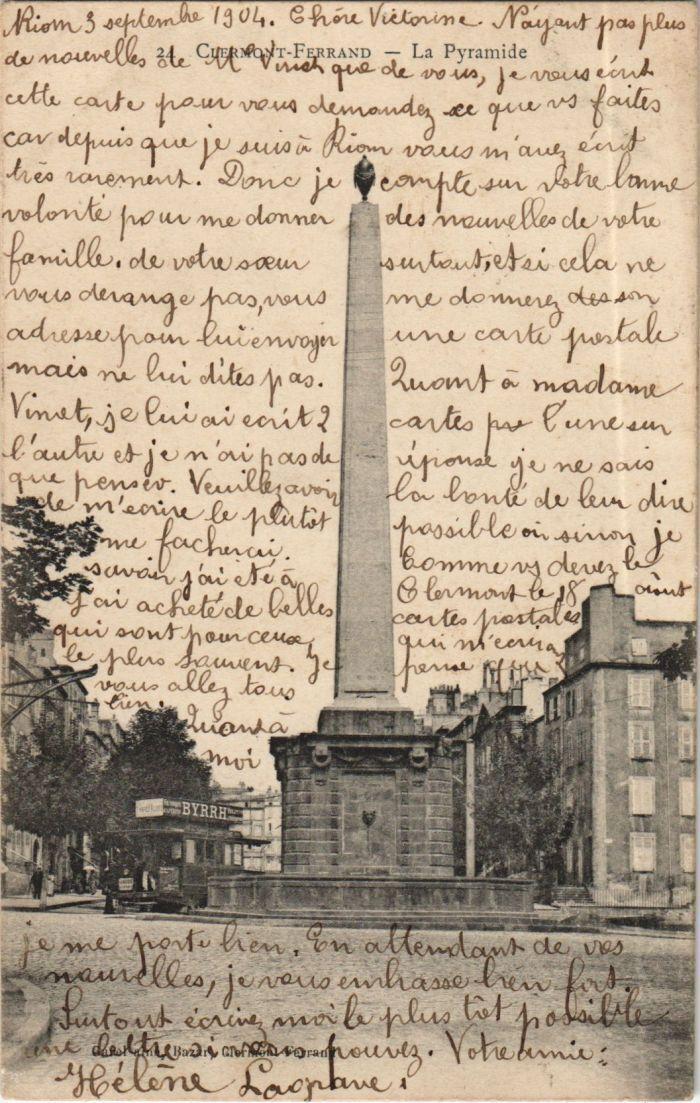 Riom 3 septembre 1904. Chère Victorine. N'ayant pas plus
24 CLERMONT-FERRAND — La Pyramide
de nouvelles de Mme Vinet que de vous, je vous écrit
cette carte pour vous demandez ce que vs faites
car depuis que je suis à Riom vous m'avez écrit
très rarement. Donc je compte sur votre bonne
volonté pour me donner des nouvelles de votre
famille. de votre sœur surtout, et si cela ne
vous derange pas, vous me donnerez son
adresse pour lui envoyer une carte postale
mais ne lui dites pas. Quant à madame
Vinet, je lui ai ecrit 2 cartes l'une sur
l'autre et je n'ai pas de réponse je ne sais
que penser. Veuillez avoir la bonté de leur dire
de m'écrire le plutôt possible ou sinon je
me facherai. Comme vs devez le
savoir j'ai été à Clermont le 18 août
j'ai acheté de belles cartes postales
qui sont pour ceux qui m'écrira
le plus souvent. Je pense que
vous allez tous
bien. Quant à
moi
BYRRH
je me porte bien. En attendant de vos
nouvelles, je vous embrasse bien fort.
Surtout écrivez moi le plus tôt possible
une lettre si vous pouvez. Votre amie:
Bazar, Clermont-Ferrand
Hélène